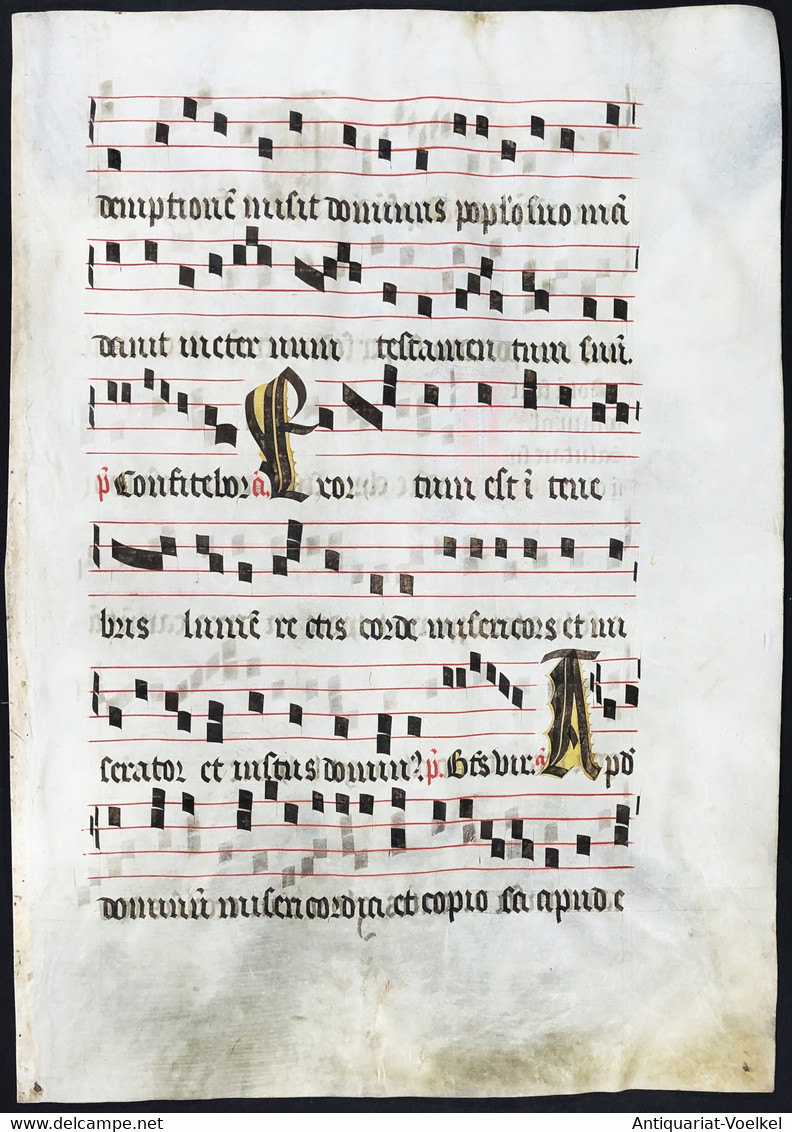 demptionē misit dominus poplo suo mā
davit in eter num testamen tum suū.
p̄ Confitebor ā. Exor tum est ī tene
bris lumē re ctis corde misericors et mi
serator et iustus domin⁹ p̄. Bt̄s vir. ā Apd̄
dominū miseri cordia et copio sa apud e
Antiquariat-Voelkel